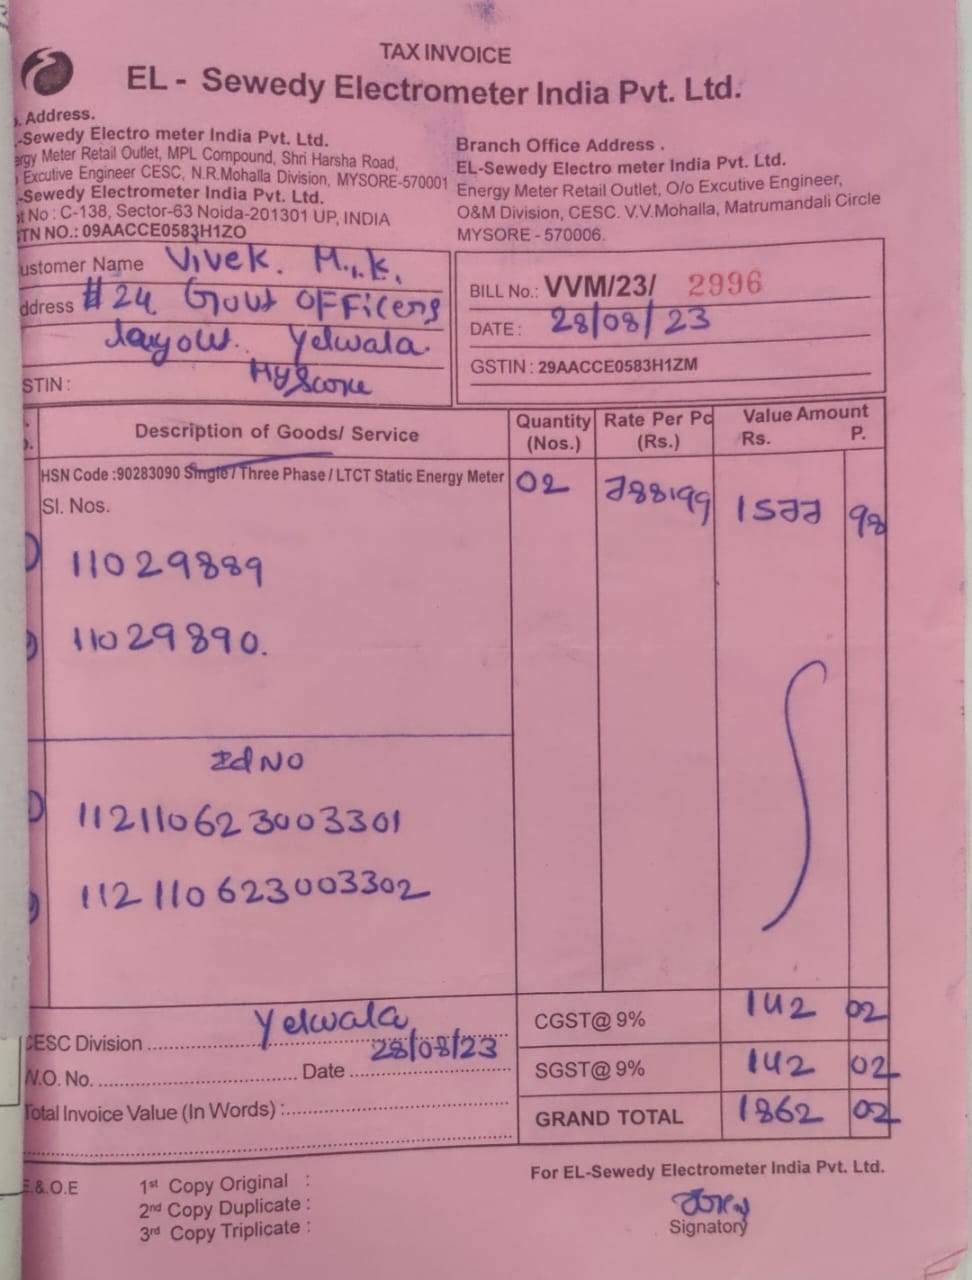 TAX INVOICE
EL - Sewedy Electrometer India Pvt. Ltd.
Address.
-Sewedy Electro meter India Pvt. Ltd.
Meter Retail Outlet, MPL Compound, Shri Harsha Road,
Excutive Engineer CESC, N.R.Mohalla Division, MYSORE-570001
-Sewedy Electrometer India Pvt. Ltd.
No : C-138, Sector-63 Noida-201301 UP, INDIA
TN NO.: 09AACCE0583H1ZO
Branch Office Address .
EL-Sewedy Electro meter India Pvt. Ltd.
Energy Meter Retail Outlet, O/o Excutive Engineer,
O&M Division, CESC. V.V.Mohalla, Matrumandali Circle
MYSORE - 570006.
ustomer Name Vivek. M..k.
ddress #24 Govt OFFicers
layout. Yelwala.
Mysore
STIN :
BILL No.: VVM/23/ 2996
DATE : 28/08/23
GSTIN : 29AACCE0583H1ZM
Description of Goods/ Service Quantity (Nos.) Rate Per Pc (Rs.) Value Amount Rs. P.
HSN Code :90283090 Single / Three Phase / LTCT Static Energy Meter 02 788.99 1577 98
Sl. Nos.
1) 11029889
2) 11029890.
Id NO
1) 112110623003301
2) 112110623003302
CGST@ 9% 142 02
SGST@ 9% 142 02
GRAND TOTAL 1862 02
CESC Division Yelwala
N.O. No. Date 28/08/23
Total Invoice Value (In Words) :
E.&.O.E
1st Copy Original :
2nd Copy Duplicate :
3rd Copy Triplicate :
For EL-Sewedy Electrometer India Pvt. Ltd.
Signatory